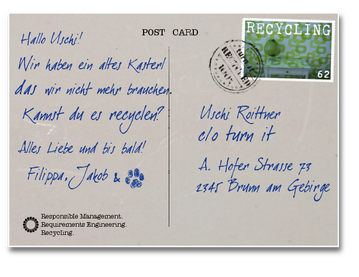 POST CARD
Hallo Uschi!
Wir haben ein altes Kasterl
das wir nicht mehr brauchen.
Kannst du es recyclen?
Alles Liebe und bis bald!
Filippa, Jakob &
Responsible Management.
Requirements Engineering.
Recycling.
RECYCLING
62
Uschi Roittner
c/o turn it
A. Hofer Strasse 73
2345 Brunn am Gebirge